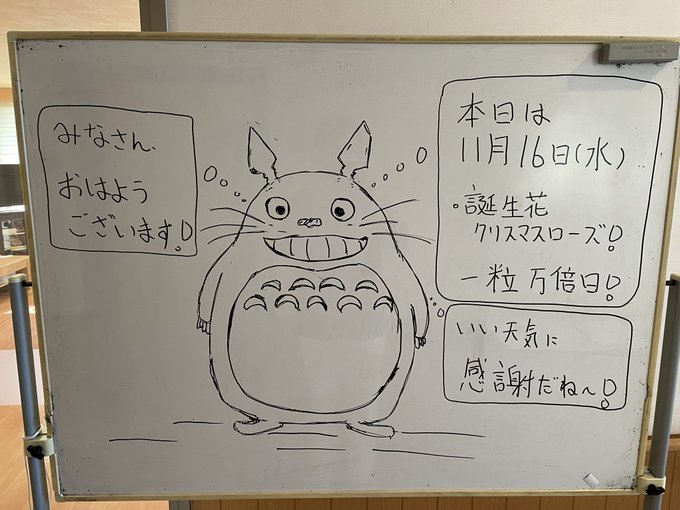 みなさん、
おはよう
ございます!
本日は
11月16日(水)
・誕生花
クリスマスローズ!
一粒万倍日!
いい天気に
感謝だね〜!